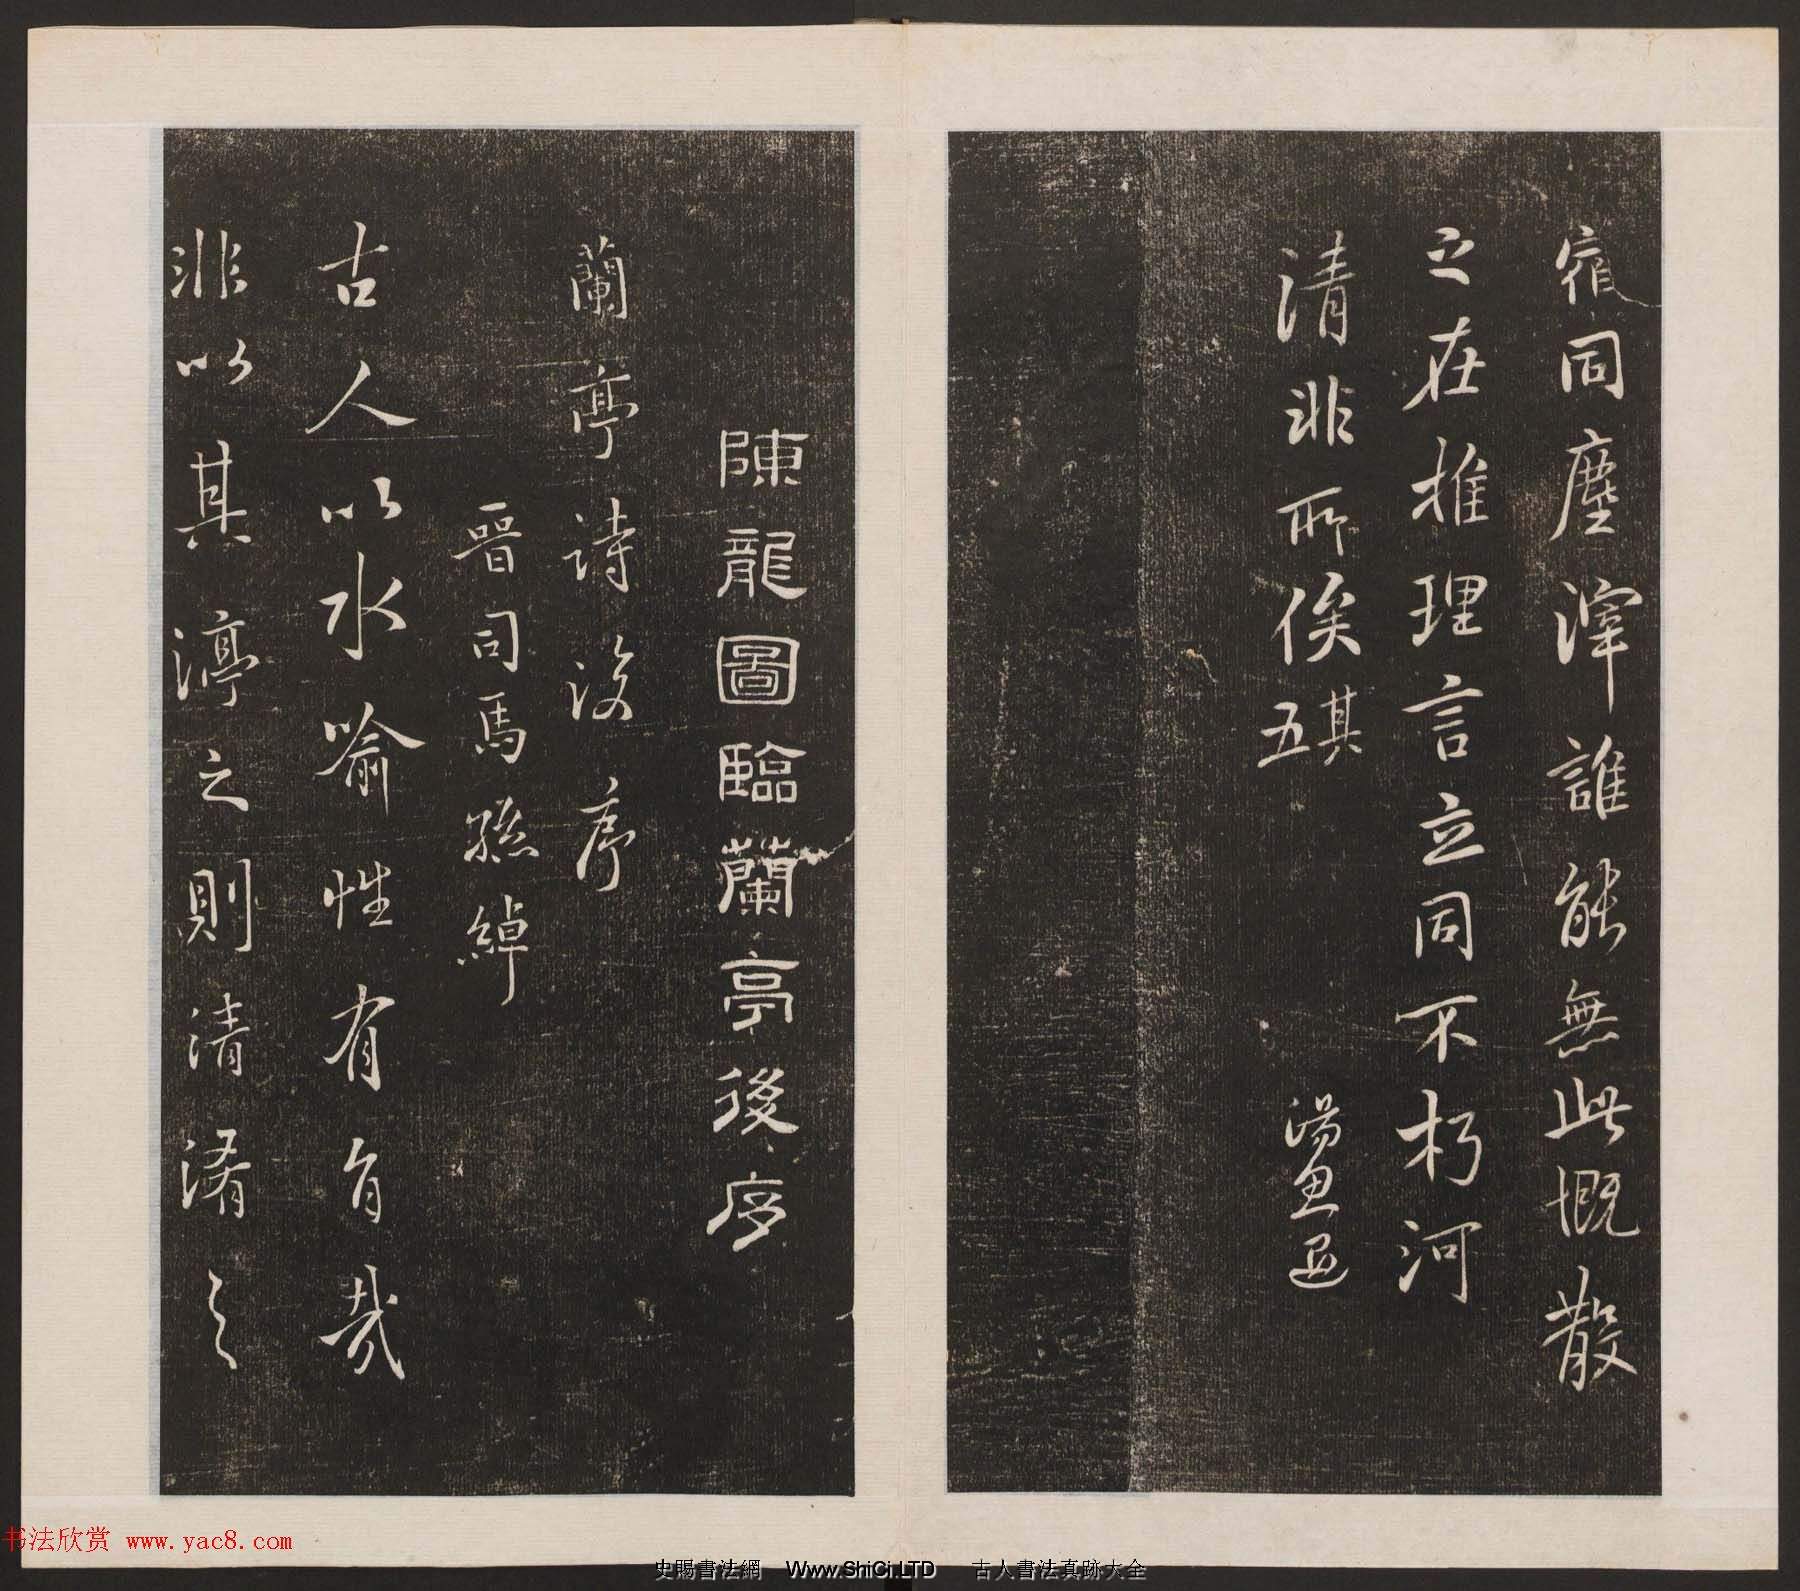 宿同塵滓誰能無此慨散
之在推理言立同不朽河
清非所俟其五
陳龍圖臨蘭亭後序
蘭亭詩後序
晉司馬孫綽
古人以水喻性有旨哉
非以其渟之則清淆之
书法欣赏 www.yac8.com
史賜書法網 Www.ShiCi.LTD 古人書法真跡大全